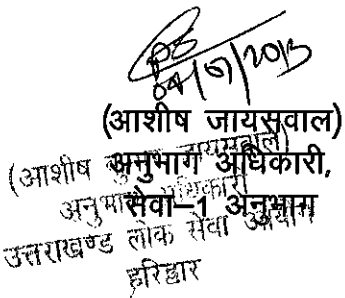 04/9/2013
(आशीष जायसवाल)
अनुभाग अधिकारी,
सेवा–1 अनुभाग
(आशीष कुमार जायसवाल)
अनुभाग अधिकारी
उत्तराखण्ड लोक सेवा आयोग
हरिद्वार